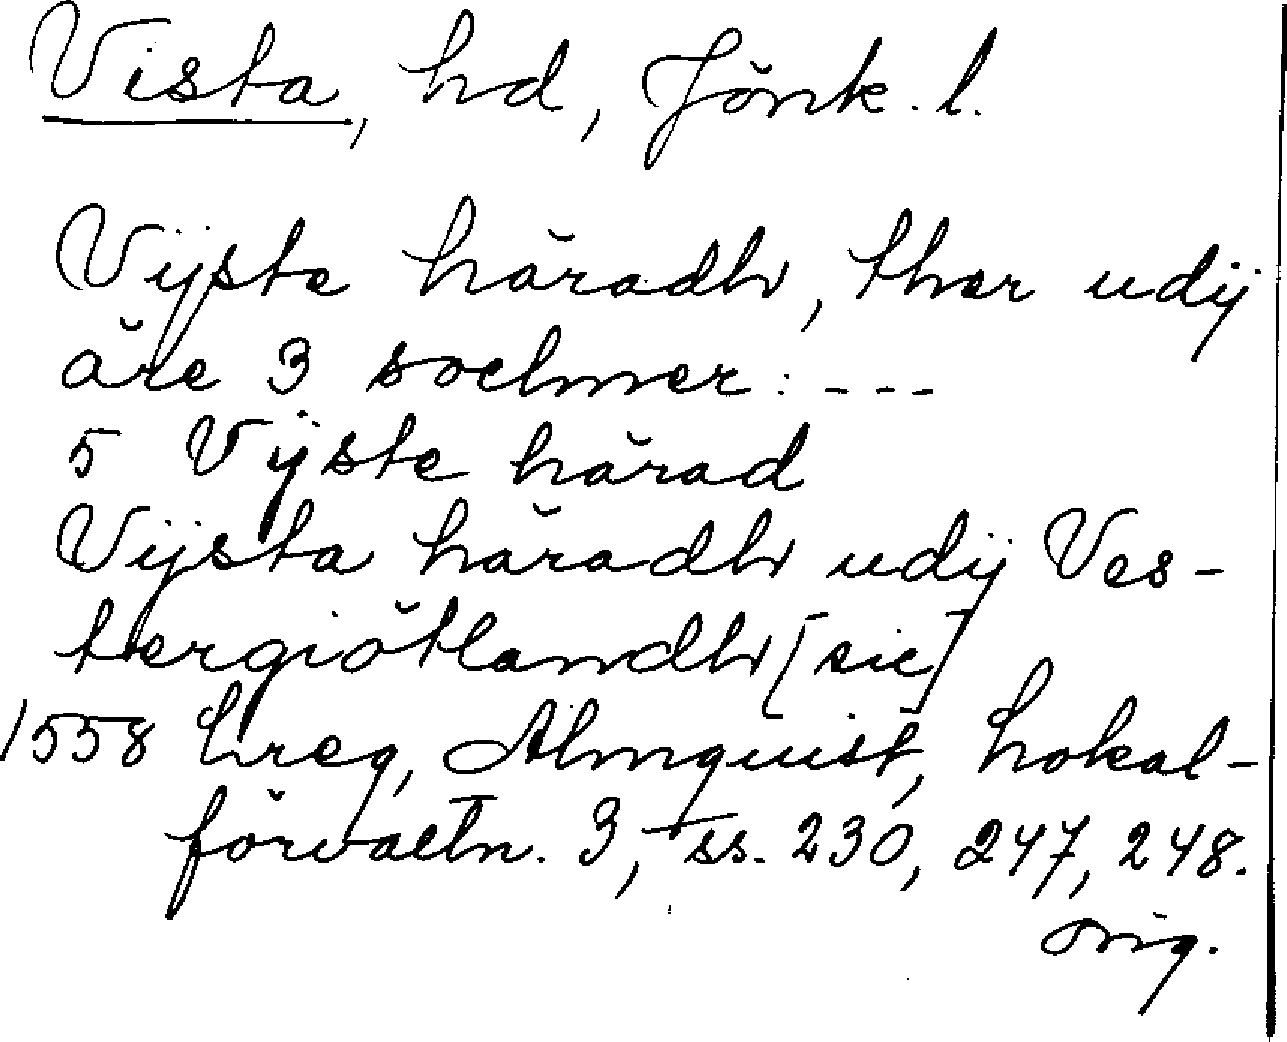 Vista, hd, Jönk. l.
Vijste häradh, ther udij
äre 3 soclmer: ---
5 Vijste härad
Vijsta häradh udij Ves-
tergiötlandh [sic]
1558 Lreg, Almquist, Lokal-
förvaltn. 3, ss. 230, 247, 248.
orig.